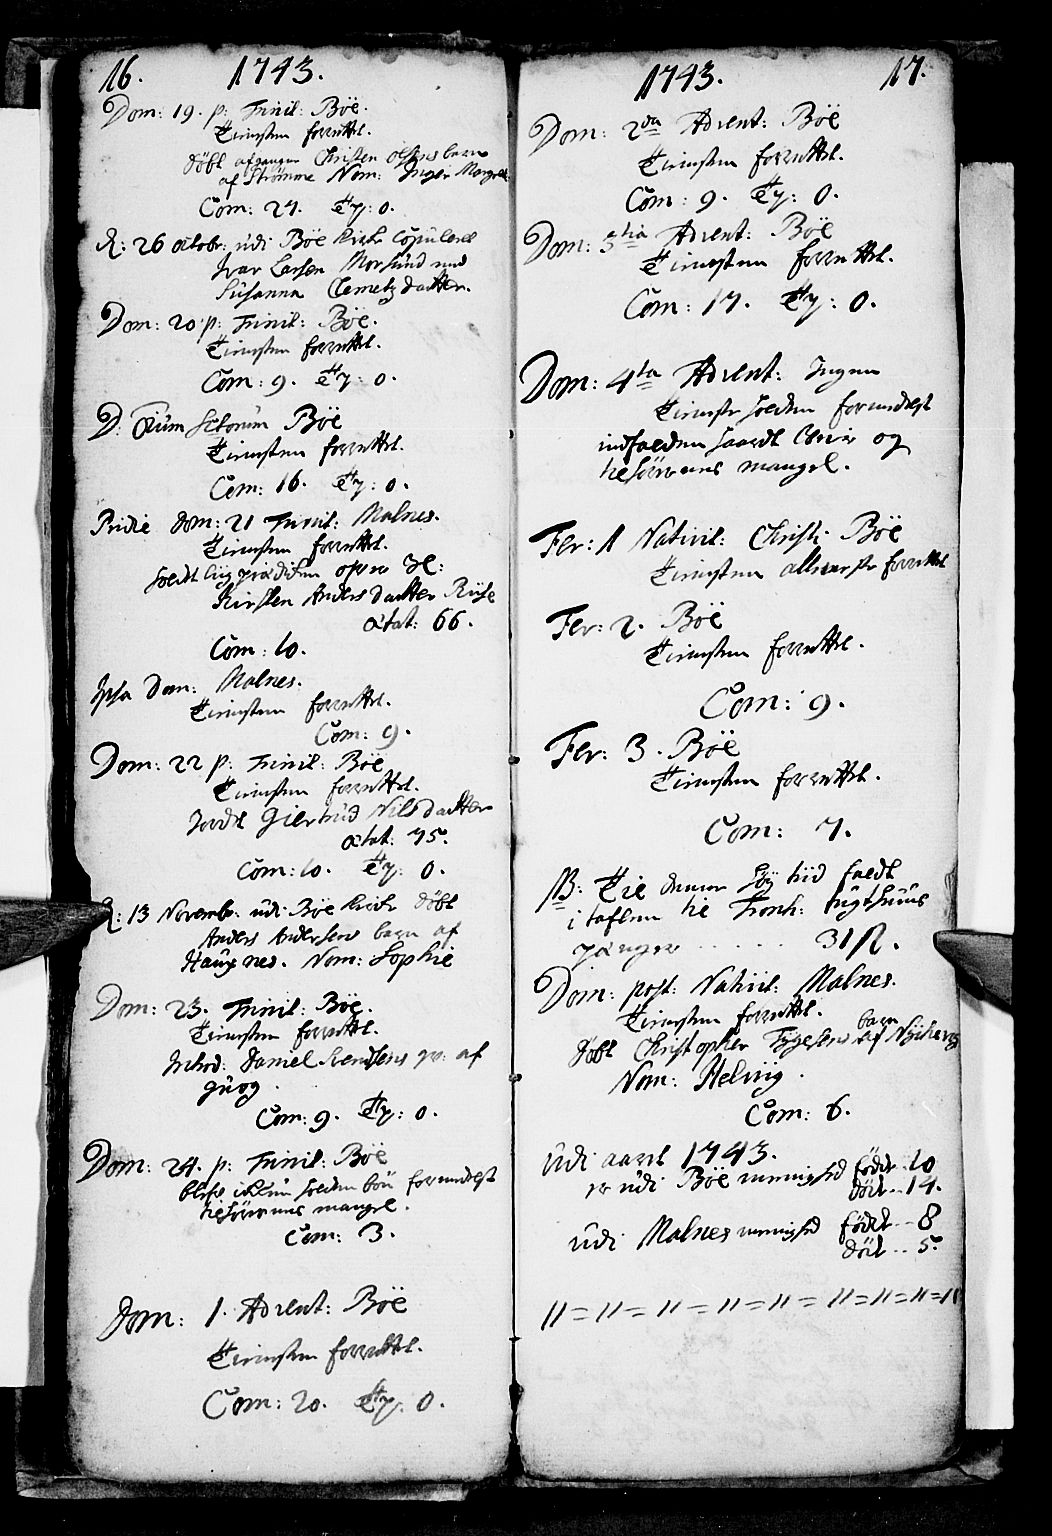 16. 1743.
Dom: 19. p: Trinit: Bøe.
Tienesten forrettet.
Døbt afgangen Christen Olsens barn
af Strømme Nom: Inger Margret
Com: 27. : 0.
d: 26 octobr: udi Bøe kirke Copuleret
Ivar Larsen Morsund med
Susanna Clemetzdatter.
Dom: 20 p: Trinit: Bøe.
Tienesten forrettet.
Com: 9. : 0.
D: Oium Sctorum Bøe
Tienesten forrettet.
Com: 16. : 0.
Pridie dom: 21 Trinit: Malnes.
Tienesten forrettet.
holdt liigprædiken over
Kirsten Andersdatter
ætat: 66.
Com: 10.
Ipsa Dom: Malnes.
Tienesten forrettet.
Com: 9.
Dom: 22 p: Trinit: Bøe
Tienesten forrettet.
Jordet Giertrud Nilsdatter
ætat: 75.
Com: 10. : 0.
d: 13 Novembr: udi Bøe kirke døbt
Anders Andersens barn af
Haugnes. Nom: Sophie
Dom: 23. Trinit: Bøe.
Tienesten forrettet.
Introd: Daniel Svendsens qv: af
Guog.
Com: 9. : 0.
Dom: 24. p: Trinit: Bøe
blefv ikkun holden bøn formedelst
tilhørernes mangel.
Com: 3.
Dom: 1. Advent: Bøe
Tienesten forrettet.
Com: 20. : 0.
1743. 17.
Dom: 2da Advent: Bøe
Tienesten forrettet.
Com: 9. : 0.
Dom: 3tia Advent: Bøe
Tienesten forrettet.
Com: 17. : 0.
Dom: 4ta Advent: Ingen
Tieneste holden formedelst
indfalden haardt Veir og
tilhørernes mangel.
Fer: 1 Nativit: Christi Bøe
Tienesten forrettet
Fer: 2. Bøe
Tienesten forrettet.
Com: 9.
Fer: 3. Bøe
Tienesten forrettet.
Com: 7.
NB: Til denne Høy tiid faldt
i taflen til Tronh: tugthuus
penger . . . . . . 31 β.
Dom: post: Nativit: Malnes.
Tienesten forrettet.
Døbt Christopher barn af
Nom: Helvig.
Com: 6.
Udi aaret 1743.
er udi Bøe menighed født .. 10
død .. 14.
Udi Malnes menighed født .. 8
død .. 5.